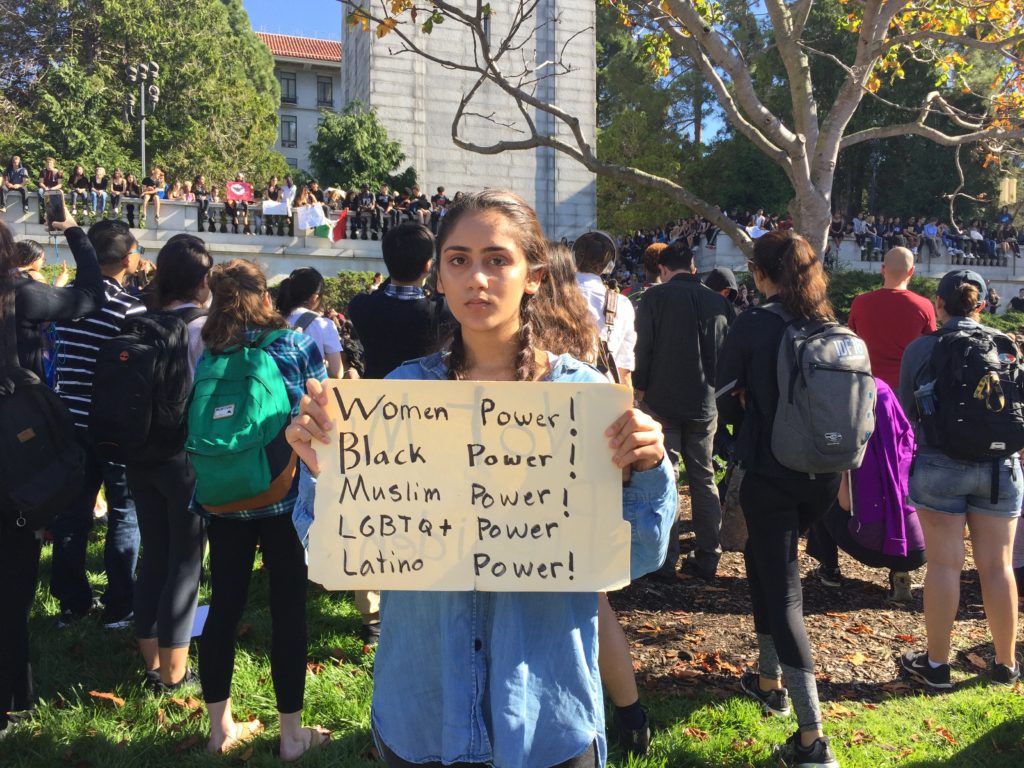 Women Power!
Black Power!
Muslim Power!
LGBTQ+ Power
Latino Power!